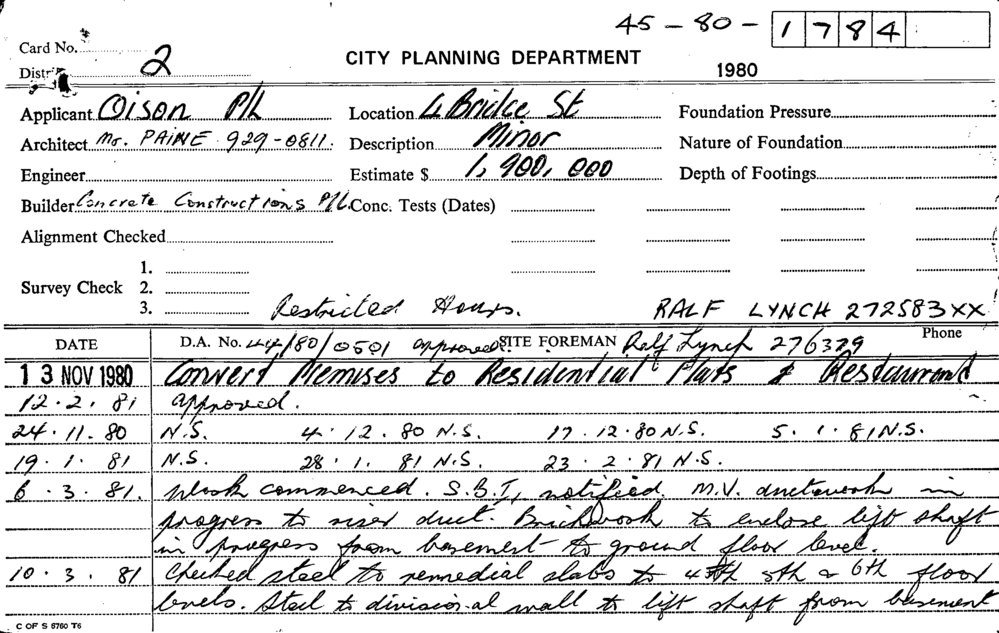 45-80-1784
Card No.
Distri 2
CITY PLANNING DEPARTMENT
1980
Applicant Oison P/L Location 4 Bridge St Foundation Pressure
Architect Mr. PAINE 929-0811. Description Minor Nature of Foundation
Engineer Estimate $ 1,900,000 Depth of Footings
Builder Concrete Constructions P/L. Conc. Tests (Dates)
Alignment Checked
1.
Survey Check 2.
3. Restricted Hours. RALF LYNCH 272583XX
DATE D.A. No. 44/80/0501 approved. SITE FOREMAN Ralf Lynch 276379 Phone
13 NOV 1980 Convert Premises to Residential Flats & Restaurant
12.2.81 approved.
24.11.80 N.S. 4.12.80 N.S. 17.12.80 N.S. 5.1.81 N.S.
19.1.81 N.S. 28.1.81 N.S. 23.2.81 N.S.
6.3.81. Work commenced. S.B.I. notified. M.V. ductwork in
progress to riser duct. Brickwork to enclose lift shaft
in progress from basement to ground floor level.
10.3.81 Checked steel to remedial slabs to 4th 5th & 6th floor
levels. Steel to divisional wall to lift shaft from basement
C OF S 6760 T6